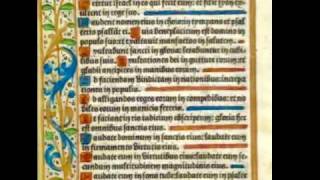 Letetur israel in eo qui fecit eum: et filii syon
in rege suo
Laudent nomen eius in choro: in tympano et psal
terio psallant ei Quia beneplacitum est domino in
populo suo: et exaltabit mansuetos in salutem
Exultabunt sancti in gloria: letabuntur in cubi
libus suis Exultationes dei in gutture eorum: et
gladii ancipites in manibus eorum
Ad faciendam vindictam in nationibus: increpa
tiones in populis
Ad alligandos reges eorum in compedibus: et no
biles eorum in manicis ferreis
Ut faciant in eis iudicium conscriptum: gloria hec
est omnibus sanctis eius
Laudate dominum in sanctis eius: laudate eum in
firmamento virtutis eius
Laudate eum in virtutibus eius: laudate eum se
cundum multitudinem magnitudinis eius
Laudate eum in